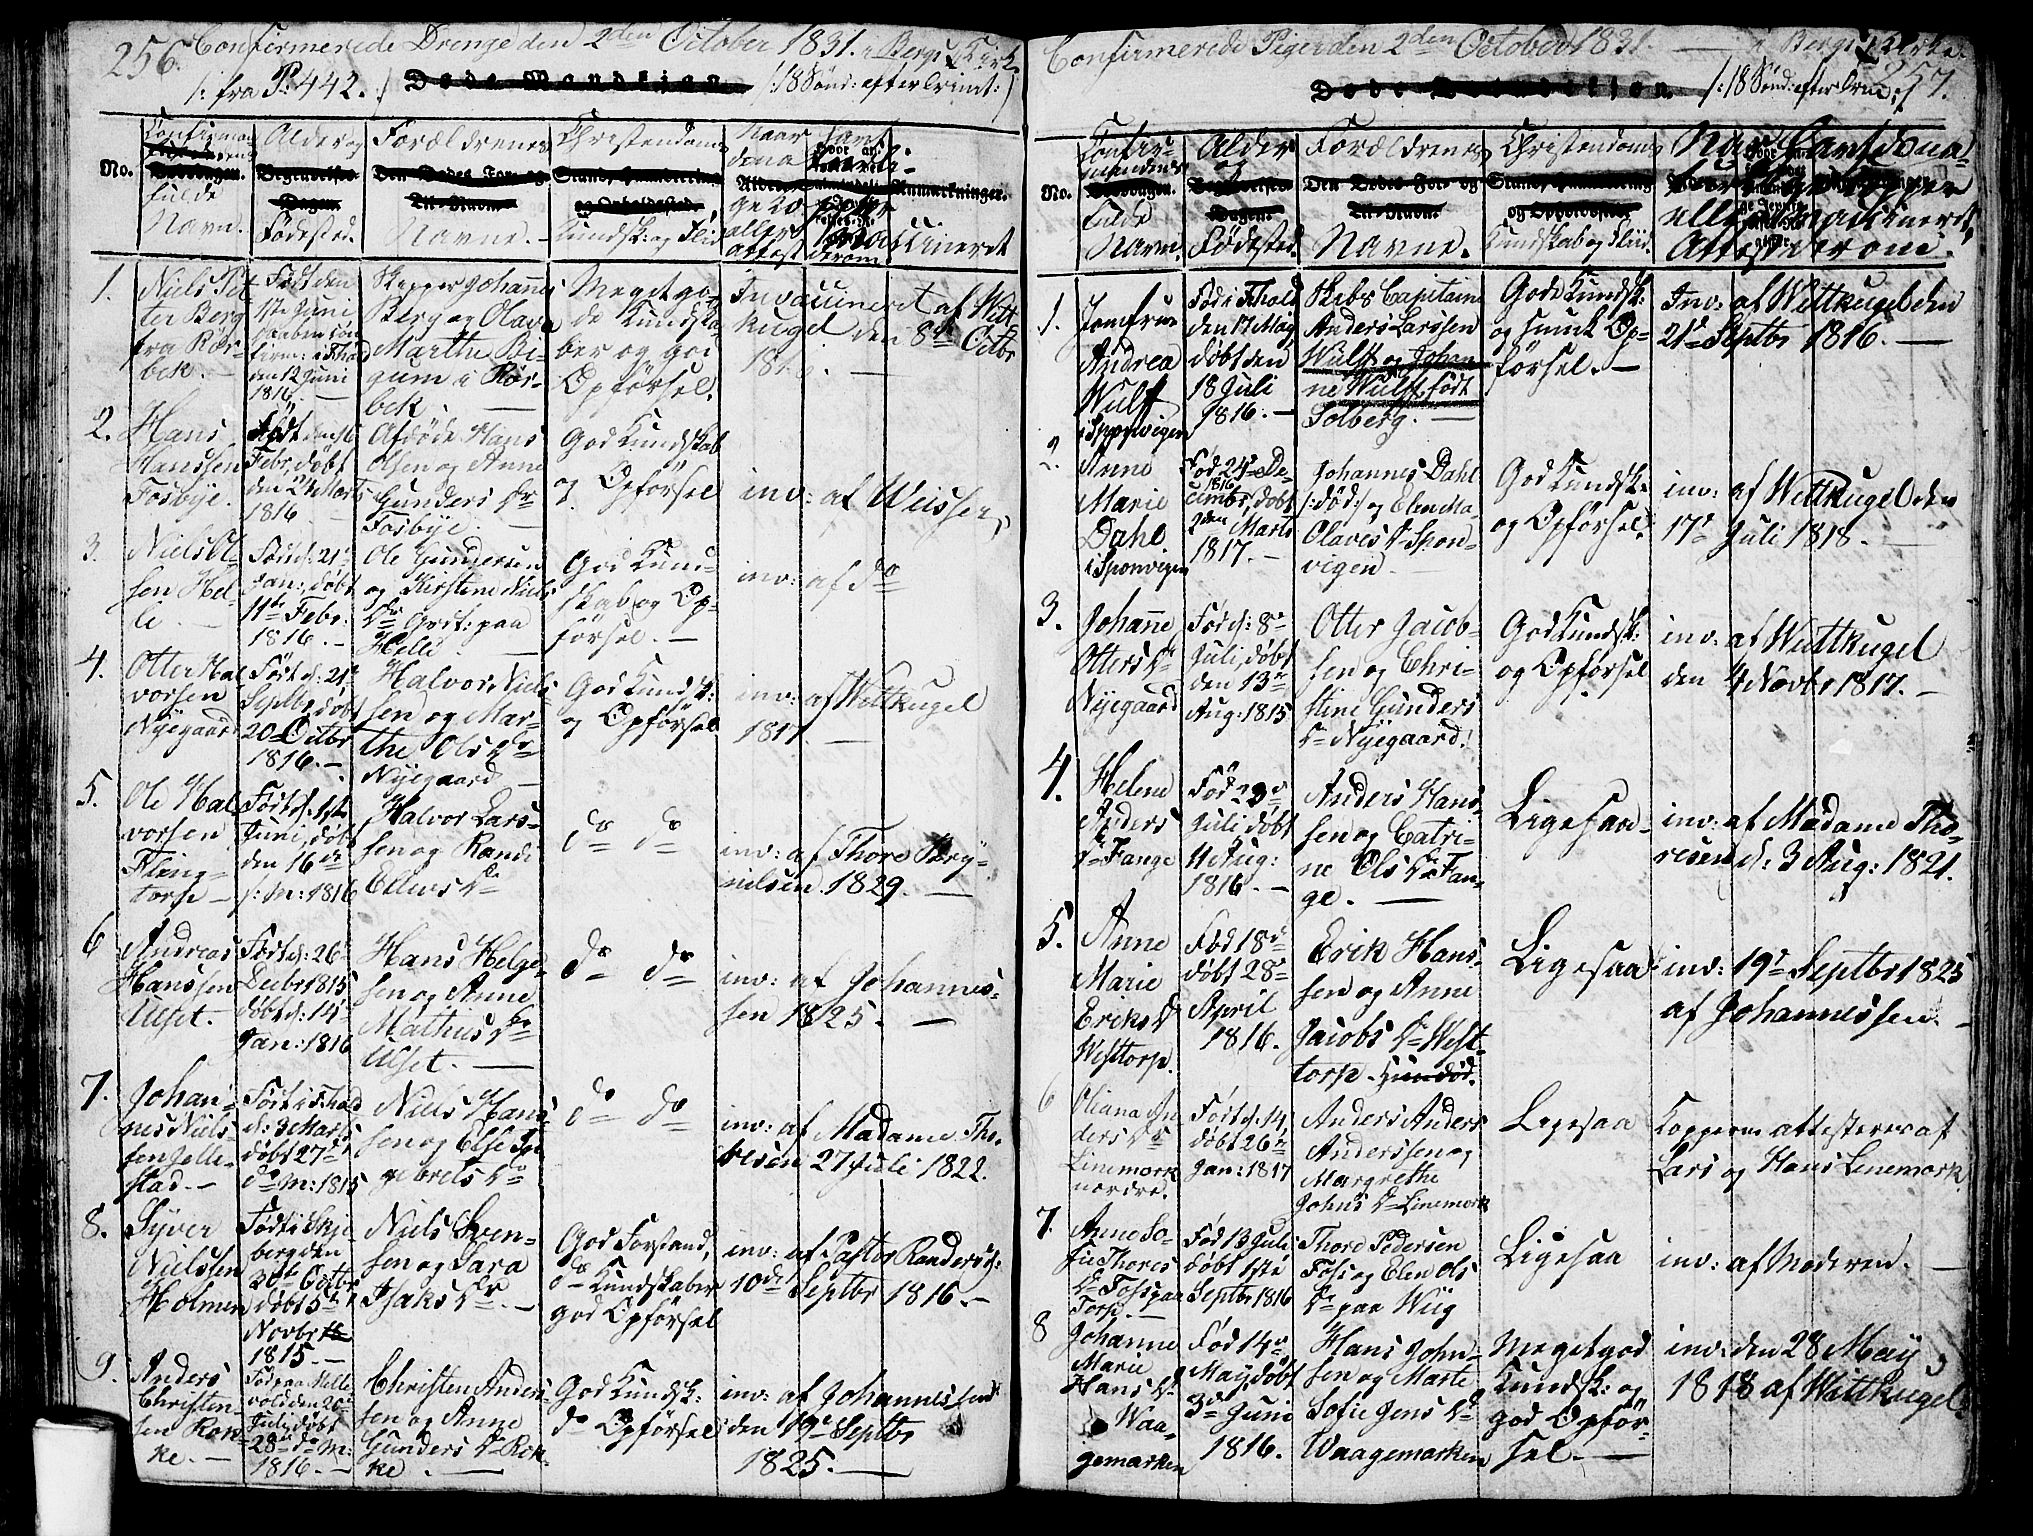 256. Confirmerede Drenge den 2den October 1831. i Bergs Kirke
/: fra P: 442. /
Døde Mandkiøn
/:18 Sønd: efter Trinit:/
No.
Confirman-
dens
fulde
Navn.
Alder og
Begravelses-
Dagen.
Fødested.
Forældrenes
Den Dødes For- og
Til-Navn.
Navne.
Christendoms
Stand, Haandtering
og Opholdssted.
Kundsk: og Flid
Naar
Anmærkninger.
1.
Niels Pet-
ter Berg
fra Rør-
bek.
Født den
1ste Juni
den 12 Juni
1816.
Skipper Johannes
Berg og Olava
Marthe Bi-
gum i Rør-
bek.
Meget go-
de Kundska-
ber og god
Opførsel.
Invaccineret af Witt-
kugel den 8de Octbr
2.
Hans
Hanssen
Fosbye.
Født den 16
Febr., døbt
den 24 Marts
1816
Afdøde Hans
Olsen og Anne
Gunders Dr
Fosbye.
God Kundskab
og Opførsel
inv: af Weisser,
3.
Niels Ol-
sen Hel-
le.
Fød d: 21de
Jan:, døbt
11te Febr.
1816.
Ole Gundersen
og Kirsten Niels
Dr Grst: paa
Helle
God Kund-
skab og Op-
førsel.
inv: af do
4.
Otter Hal
vorsen
Nyegaard
Født d: 21de
Septbr, døbt
20 Octbr
1816.
Halvor Niels
sen og Mar-
the Ols Dr
Nyegaard
God Kundsk:
og Opførsel
inv: af Wittkugel
1817.
5.
Ole Hal
vorsen
Fling-
torp
Født d: 1ste
Juni, døbt
den 16de
s: M: 1816
Halvor Lars-
sen og Randi
Ellevs Dr
do do
inv: af Thore Bry-
nilsen 1829.
6
Andreas
Hanssen
Ulset.
Født d: 26de
Decbr 1815
døbt d: 14de
Jan: 1816
Hans Helge-
sen og Anne
Mathias Dr
Ulset.
do do
inv: af Johannes-
sen 1825.
7.
Johan-
nes Niels-
sen Jelle-
stad.
Født i Fr:hald
d: 3 Marts
døbt 27de
do M: 1815
Niels Hans
sen og Else In
gebrets Dr
do do
inv: af Madame Tho-
resen 27 Juli 1822.
8.
Syver
Nielssen
Holmen
Født i Skje
berg den
30te Octbr
døbt 5te
Novbr
1815.
Niels Sven-
sen og Sara
Isaks Dr.
God Forstand,
do Kundskaber
god Opførsel
inv: af Pastor Randers d:
10de Septbr 1816.
9.
Anders
Christen-
sen Rok-
ke.
Fød paa Hille
vold den 20de
Juli, døbt
28de do M:
1816.
Christen Anders
sen og Anne
Gunders Dr Rok-
ke.
God Kundsk:
do Opførsel
inv: af Johannessen
den 19de Septbr
1825.
Confirmerede Piger den 2den October 1831. i Bergs Kirke
Døde Qvindekiøn
/:18 Sønd: efter Trin: /
257.
No.
Confir-
mandens
fulde
Navn.
Alder
og
Begravelses-
Dagen.
Fødested
Forældrenes
Den Dødes For- og
Til-Navn.
Navne.
Christendoms
Stand, Haandtering
og Opholdssted.
Kundskab og Flid.
1.
Jomfrue
Andrea
Wulf
i Sponvigen
Fød i Fr:hald
den 17 May
døbt den
18 Juli
1816.
Skibs Capitaine
Anders Larssen
Wulff og Johan
ne Wulff, født
Solberg.
God Kundsk:
og smuk Op-
førsel.
Inv: af Wittkugel den
21de Septbr 1816.
2.
Anne
Marie
Dahl
i Sponvigen
Fød 24de De-
1816
cembr, døbt
2den Marts
1817.
Johannes Dahl
/: død :/ og Elen Ma
Olaves Dr Spon-
vigen
God Kundsk:
og Opførsel.
inv: af Wittkugel den
17de Juli 1818.
3.
Johanne
Otters Dr
Nyegaard
Fød d: 8de
Juli, døbt
den 13de
Aug: 1815
Otter Jacob-
sen og Chri-
stine Gunders
Dr Nyegaard.
God Kundsk:
og Opførsel
inv: af Wittkugel
den 4 Novbr 1817.
4.
Helene
Anders
Dr Fange
Fød 23de
Juli, døbt
11 Aug:
1816.
Anders Hans-
sen og Catri-
ne Ols Dr Fan-
ge.
Ligesaa
inv: af Madame Tho-
resen d: 3 Aug: 1821.
5.
Anne
Marie
Eriks Dr
Westtorp.
Fød 18de
døbt 28de
April
1816.
Erik Hans-
sen og Anne
Jacobs Dr West-
torp. Hun død.
Ligesaa
inv: 19de Septbr 1825
af Johannessen.
6
Oliana An
ders Dr
Linemork
nordre.
Født d: 14,
døbt 26de
Jan: 1817
Anders Anders
Anderssen og
Margrethe
Johns Dr Linemork
Ligesaa
Kopperne attesteres af
Lars og Hans Linemork
7.
Anne So-
fie Thores
Dr Foss paa
Torp.
Fød 13 Juli
døbt 1ste
Septbr 1816
Thore Pedersen
Foss og Elen Ols
Dr paa Wiig
Ligesaa
inv: af Moderen.
8
Johanne
Marie
Hans Dr
Waa-
gemarken
Fød 14de
May, døbt
3de Juni
1816.
Hans John-
sen og Marte
Sofie Jens Dr
Waagemarken
Meget god
Kundsk: og
god Opfør-
sel.
inv: den 28 May
1818 af Wittkugel.